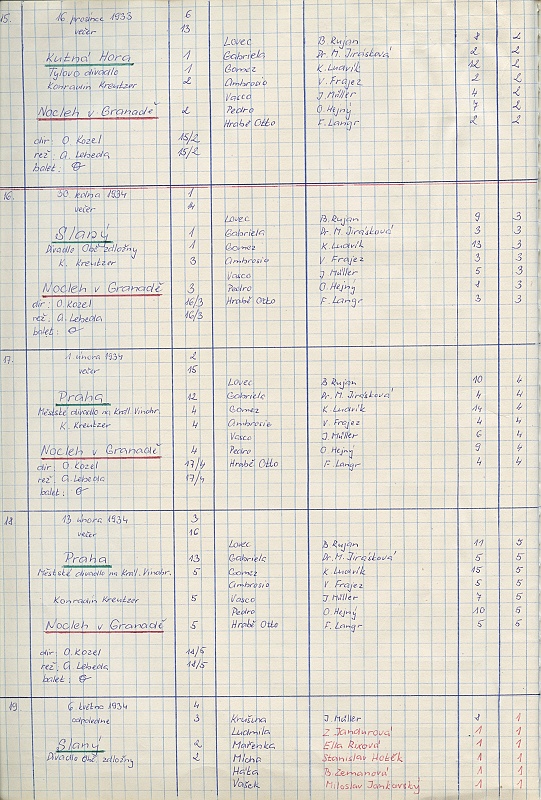 15. 16 prosince 1933 6
večer 13
Lovec B. Rujan 8 2
Kutná Hora 1 Gabriela Dr. M. Jirásková 2 2
Tylovo divadlo 1 Gomez K. Ludvík 12 2
Konradin Kreutzer 2 Ambrosio V. Frajez 2 2
Vasco J. Müller 4 2
Nocleh v Granadě 2 Pedro O. Hejný 7 2
Hrabě Otto F. Langr 2 2
dir O. Kozel 15/2
rež A. Lebeda 15/2
balet:
16. 30 ledna 1934 1
večer
Lovec B. Rujan 9 3
Slaný 1 Gabriela Dr. M. Jirásková 3 3
Divadlo Obč. záložny 1 Gomez K. Ludvík 13 3
K. Kreutzer 3 Ambrosio V. Frajez 3 3
Vasco J. Müller 5 3
Nocleh v Granadě 3 Pedro O. Hejný 8 3
dir: O. Kozel 16/3 Hrabě Otto F. Langr 3 3
rež: A. Lebeda 16/3
balet:
17. 1 února 1934 2
večer 15
Lovec B Rujan 10 4
Praha 12 Gabriela Dr. M. Jirásková 4 4
Městské divadlo na Král. Vinohr. 4 Gomez K. Ludvík 14 4
K. Kreutzer 4 Ambrosio V. Frajez 4 4
Vasco J. Müller 6 4
Nocleh v Granadě 4 Pedro O. Hejný 9 4
dir O. Kozel 17/4 Hrabě Otto F. Langr 4 4
rež A. Lebeda 17/4
balet:
18 13 února 1934 3
večer 16
Lovec B Rujan 11 5
Praha 13 Gabriela Dr. M. Jirásková 5 5
Městské divadlo na Král. Vinohr. 5 Gomez K. Ludvík 15 5
Ambrosio V Frajez 5 5
Konradin Kreutzer 5 Vasco J. Müller 7 5
Pedro O. Hejný 10 5
Nocleh v Granadě 5 Hrabě Otto F. Langr 5 5
dir O. Kozel 18/5
rež: A. Lebeda 18/5
balet:
19 6. května 1934 4
odpoledne 3 Krušina J. Müller 8 1
Ludmila Z Jandurová 1 1
Slaný 2 Mařenka Ella Ruxová 1 1
Divadlo Obč. záložny 2 Mícha Stanislav 1 1
Háta B. Zemanová 1 1
Vašek Miloslav Jankovský 1 1